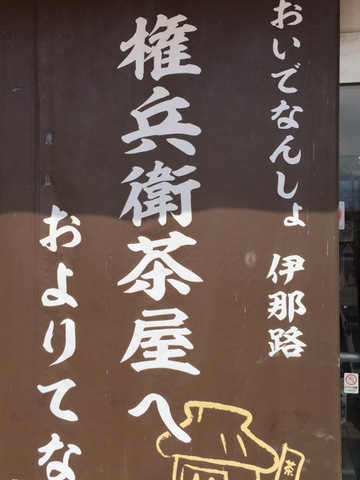 おいでなんしょ 伊那路
権兵衛茶屋へ
およりてな
茶